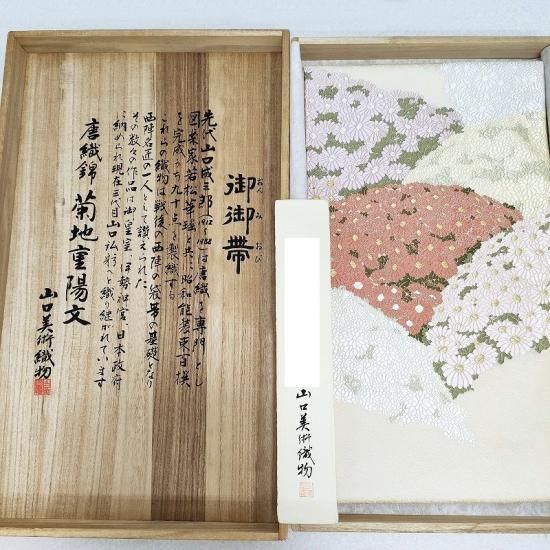 御御帯
おんみおび
先代 山口城三郎(1912〜1988)は唐織を専門とし
図案家若松華瑶と共に昭和能装束百撰
を完成 内九十点を製織する
これらの織物は戦後の西陣袋帯の基礎となり
西陣名匠の一人として讃えられた
その数々の作品は御皇室、伊勢神宮、日本政府
に納められ現在三代目山口へと織り継がれています
唐織錦 菊地重陽文
山口美術織物
山口美術織物